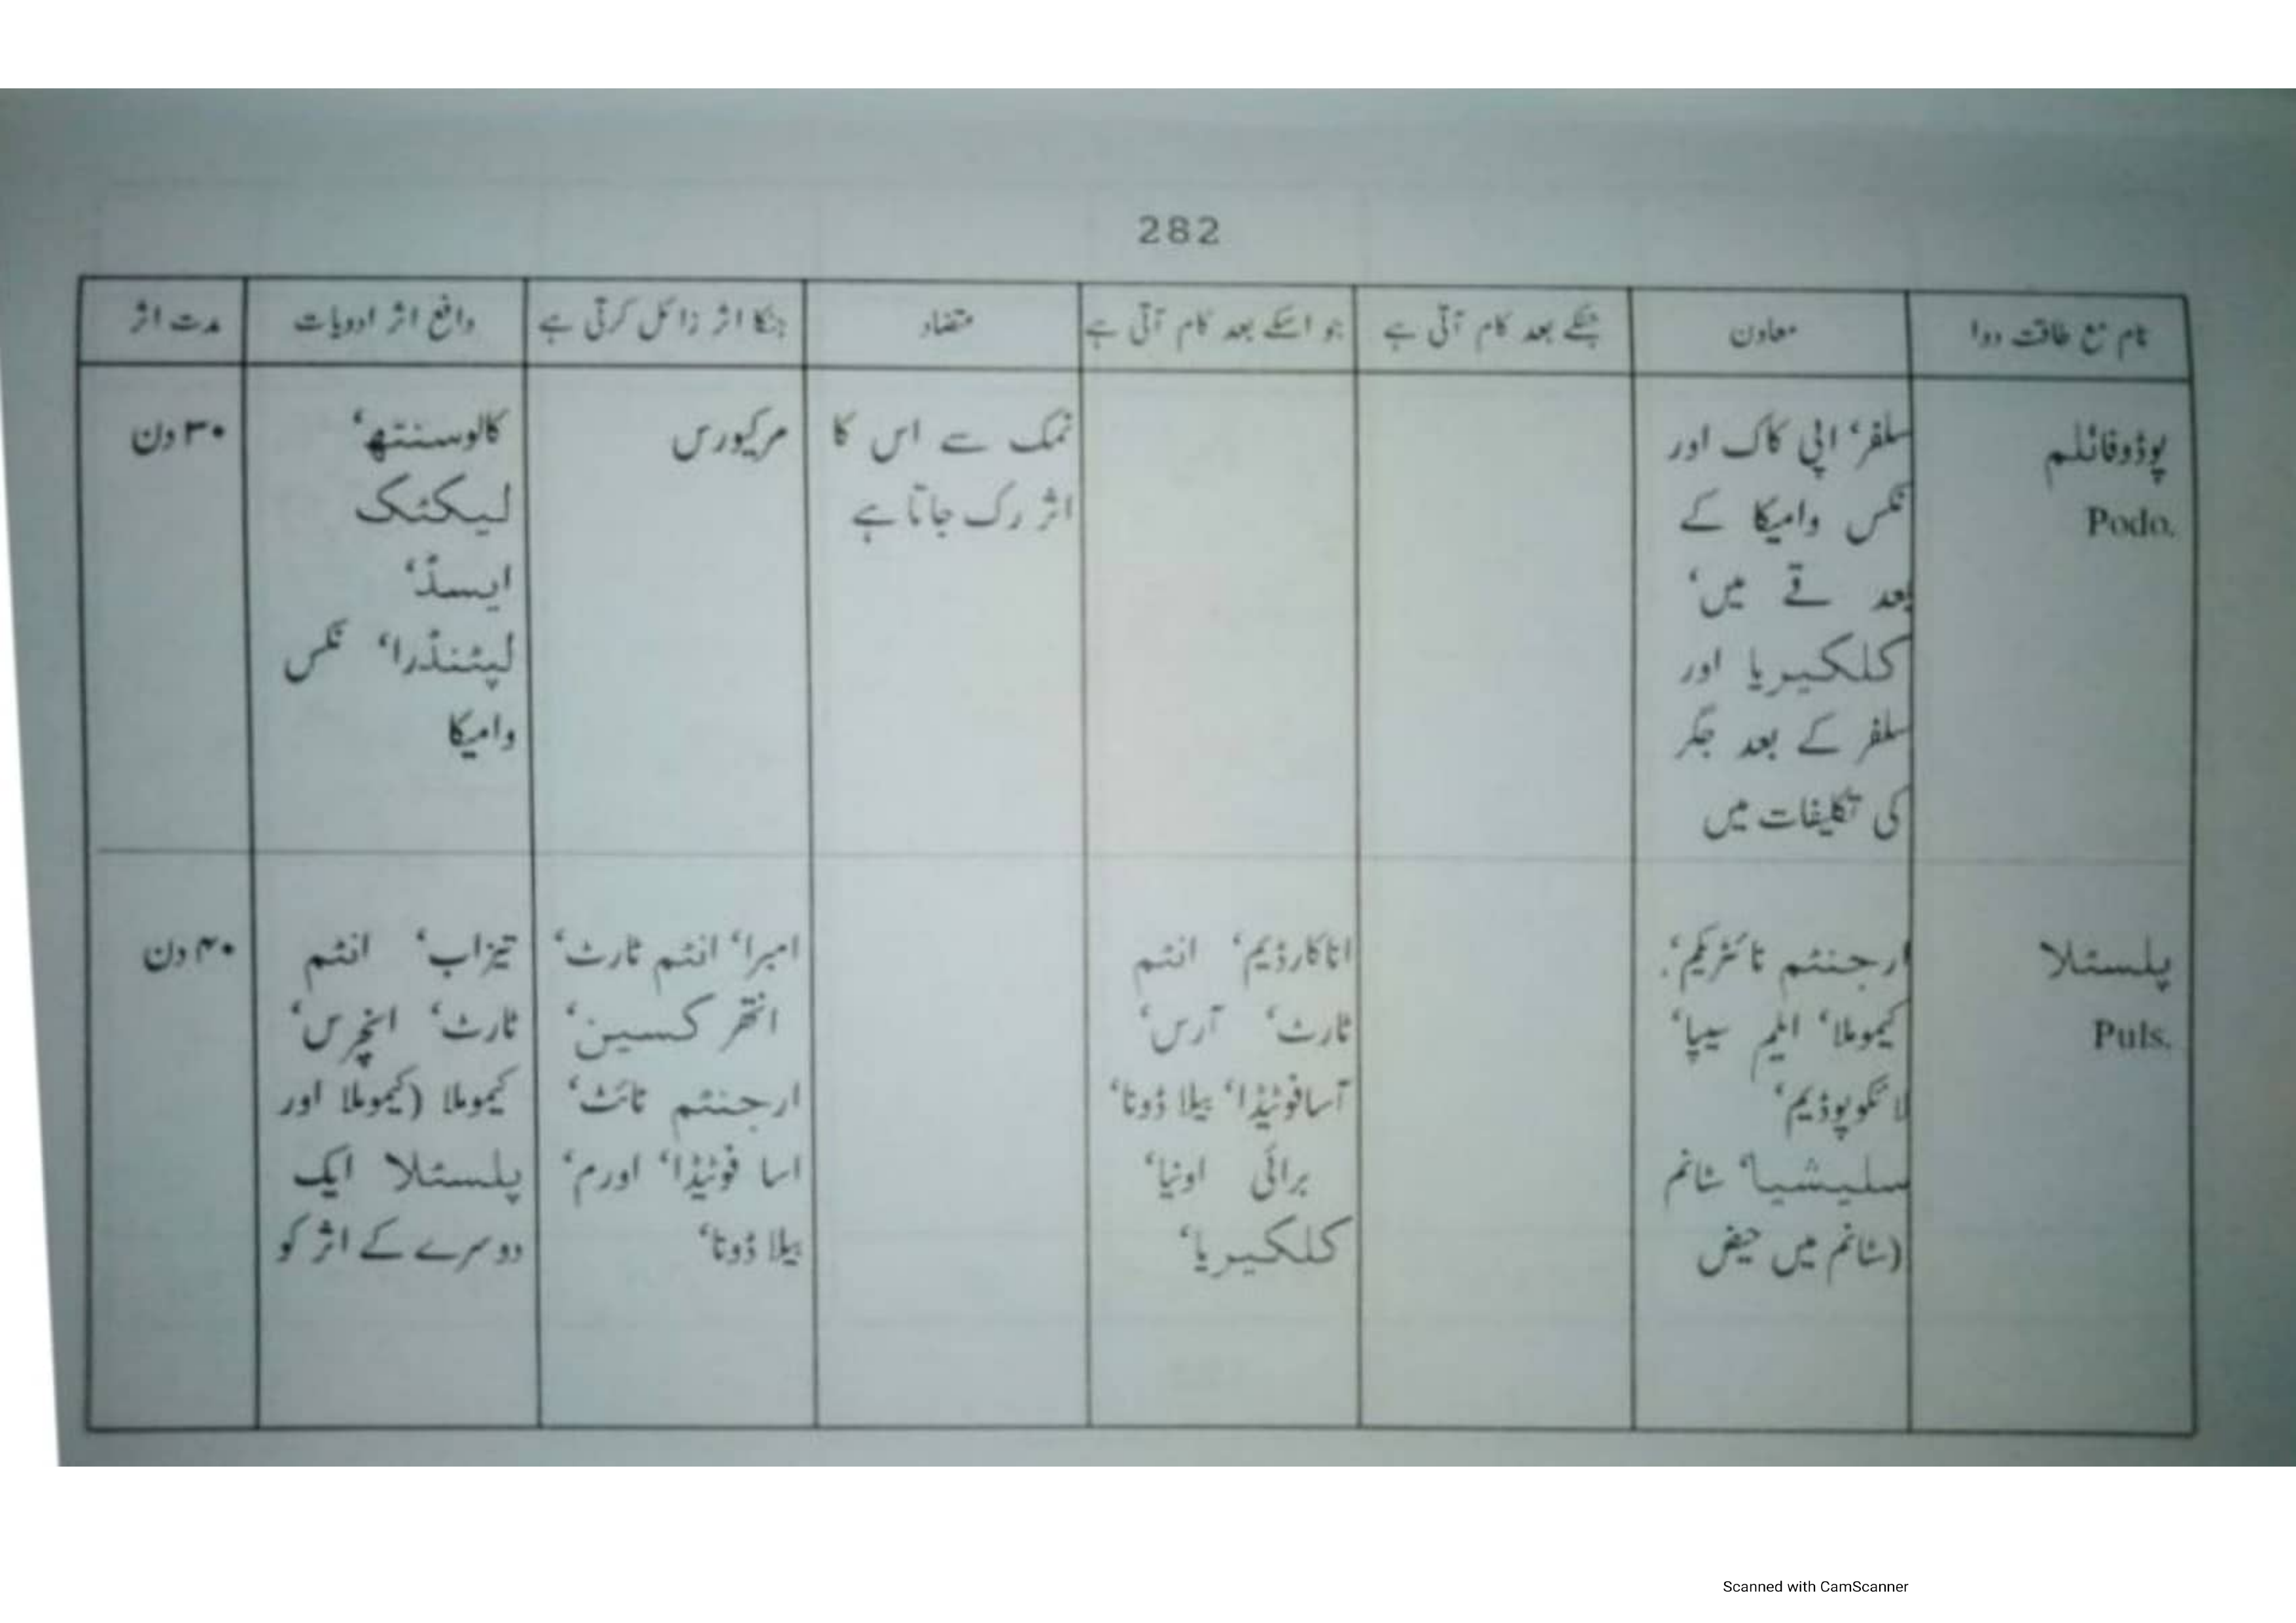 282
نام مع طاقت دوا
معاون
جسکے بعد کام آتی ہے
جو اسکے بعد کام آتی ہے
متضاد
جنکا اثر زائل کرتی ہے
دافع اثر ادویات
مدت اثر
پوڈوفائلم
Podo.
سلفر‘ اپی کاک اور
نکس وامیکا کے
بعد قے میں‘
کلکیریا اور
سلفر کے بعد جگر
کی تکلیفات میں
نمک سے اس کا
اثر رک جاتا ہے
مرکیورس
کالوسنتھ‘
لیکٹک
ایسڈ‘
لپٹنڈرا‘ نکس
وامیکا
۳۰ دن
پلسٹلا
Puls.
ارجنٹم نائٹریکم‘
کیموملا‘ ایلیم سیپا‘
لائکوپوڈیم‘
سلیشیا‘ سٹانم
(سٹانم میں حیض
اناکارڈیم‘ انٹم
ٹارٹ‘ آرس‘
آسافوٹیڈا‘ بیلا ڈونا‘
برائی اونیا‘
کلکیریا‘
امبرا‘ انٹم ٹارٹ‘
انتھر کسین‘
ارجنٹم نائٹ‘
اسا فوٹیڈا‘ اورم‘
بیلا ڈونا‘
تیزاب‘ انٹم
ٹارٹ‘
کیموملا (کیموملا اور
پلسٹلا ایک
دوسرے کے اثر کو
۴۰ دن
Scanned with CamScanner